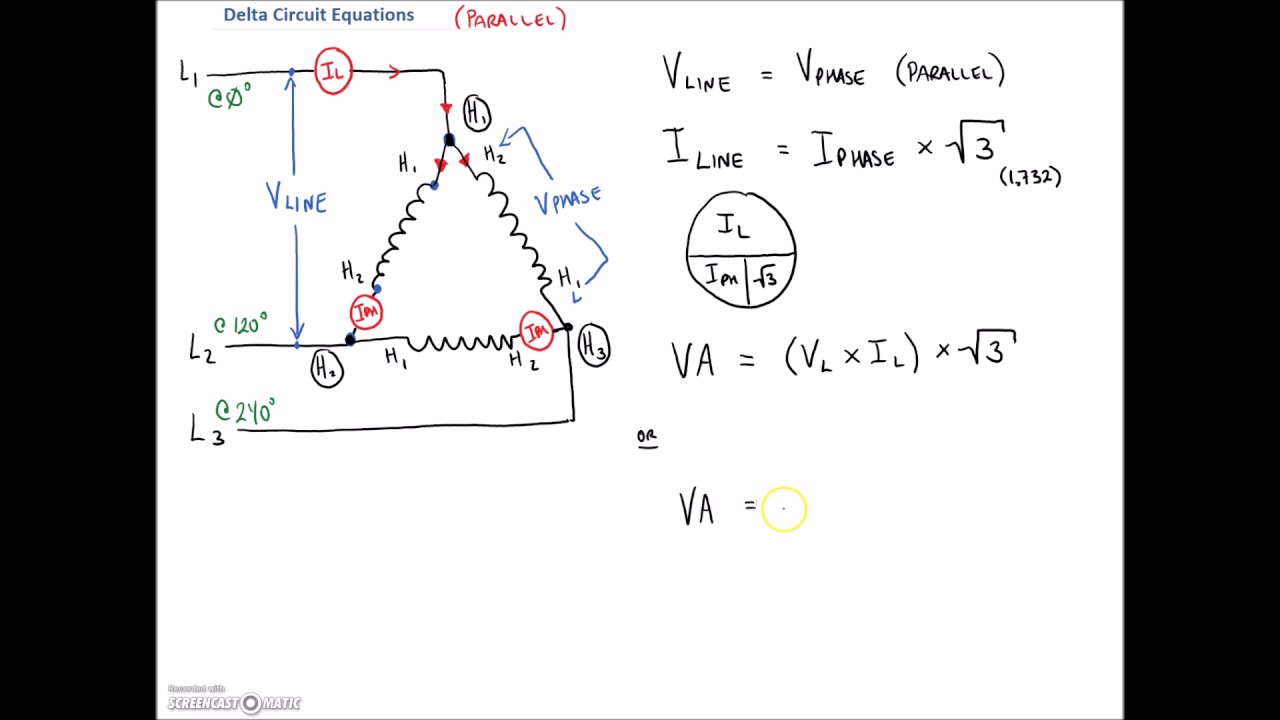 Delta Circuit Equations (PARALLEL)
L1 @0° IL
H1
H1 H2
VLINE
VPHASE
H2 H1
IPH
L2 @120°
H2 H1 H2 IPH H3
L3 @240°
VLINE = VPHASE (PARALLEL)
ILINE = IPHASE × √3
(1,732)
IL
IPH √3
VA = (VL × IL) × √3
OR
VA =
Recorded with
SCREENCAST O MATIC